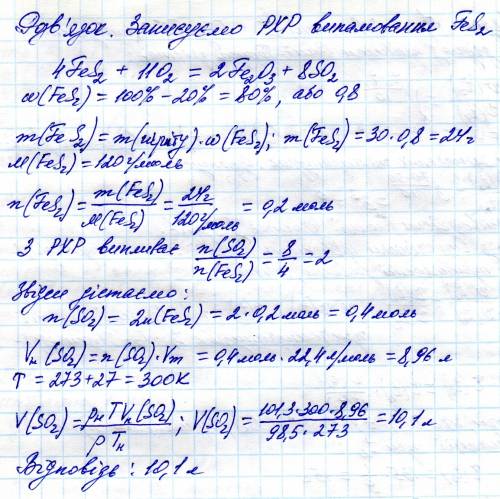 Розв'язок. Записуємо РХР випалювання FeS₂
4FeS₂ + 11O₂ = 2Fe₂O₃ + 8SO₂
ω(FeS₂) = 100% - 20% = 80%, або 0,8
m(FeS₂) = m(піриту)·ω(FeS₂); m(FeS₂) = 30·0,8 = 24г
M(FeS₂) = 120г/моль
n(FeS₂) = m(FeS₂)/M(FeS₂) = 24г/120г/моль = 0,2 моль
З РХР випливає n(SO₂)/n(FeS₂) = 8/4 = 2
Звідси дістаємо:
n(SO₂) = 2n(FeS₂) = 2·0,2моль = 0,4моль
Vₙ(SO₂) = n(SO₂)·Vm = 0,4моль·22,4л/моль = 8,96 л
T = 273 + 27 = 300K
V(SO₂) = pₙTVₙ(SO₂)/pTₙ; V(SO₂) = 101,3·300·8,96/98,5·273 = 10,1л
Відповідь: 10,1л